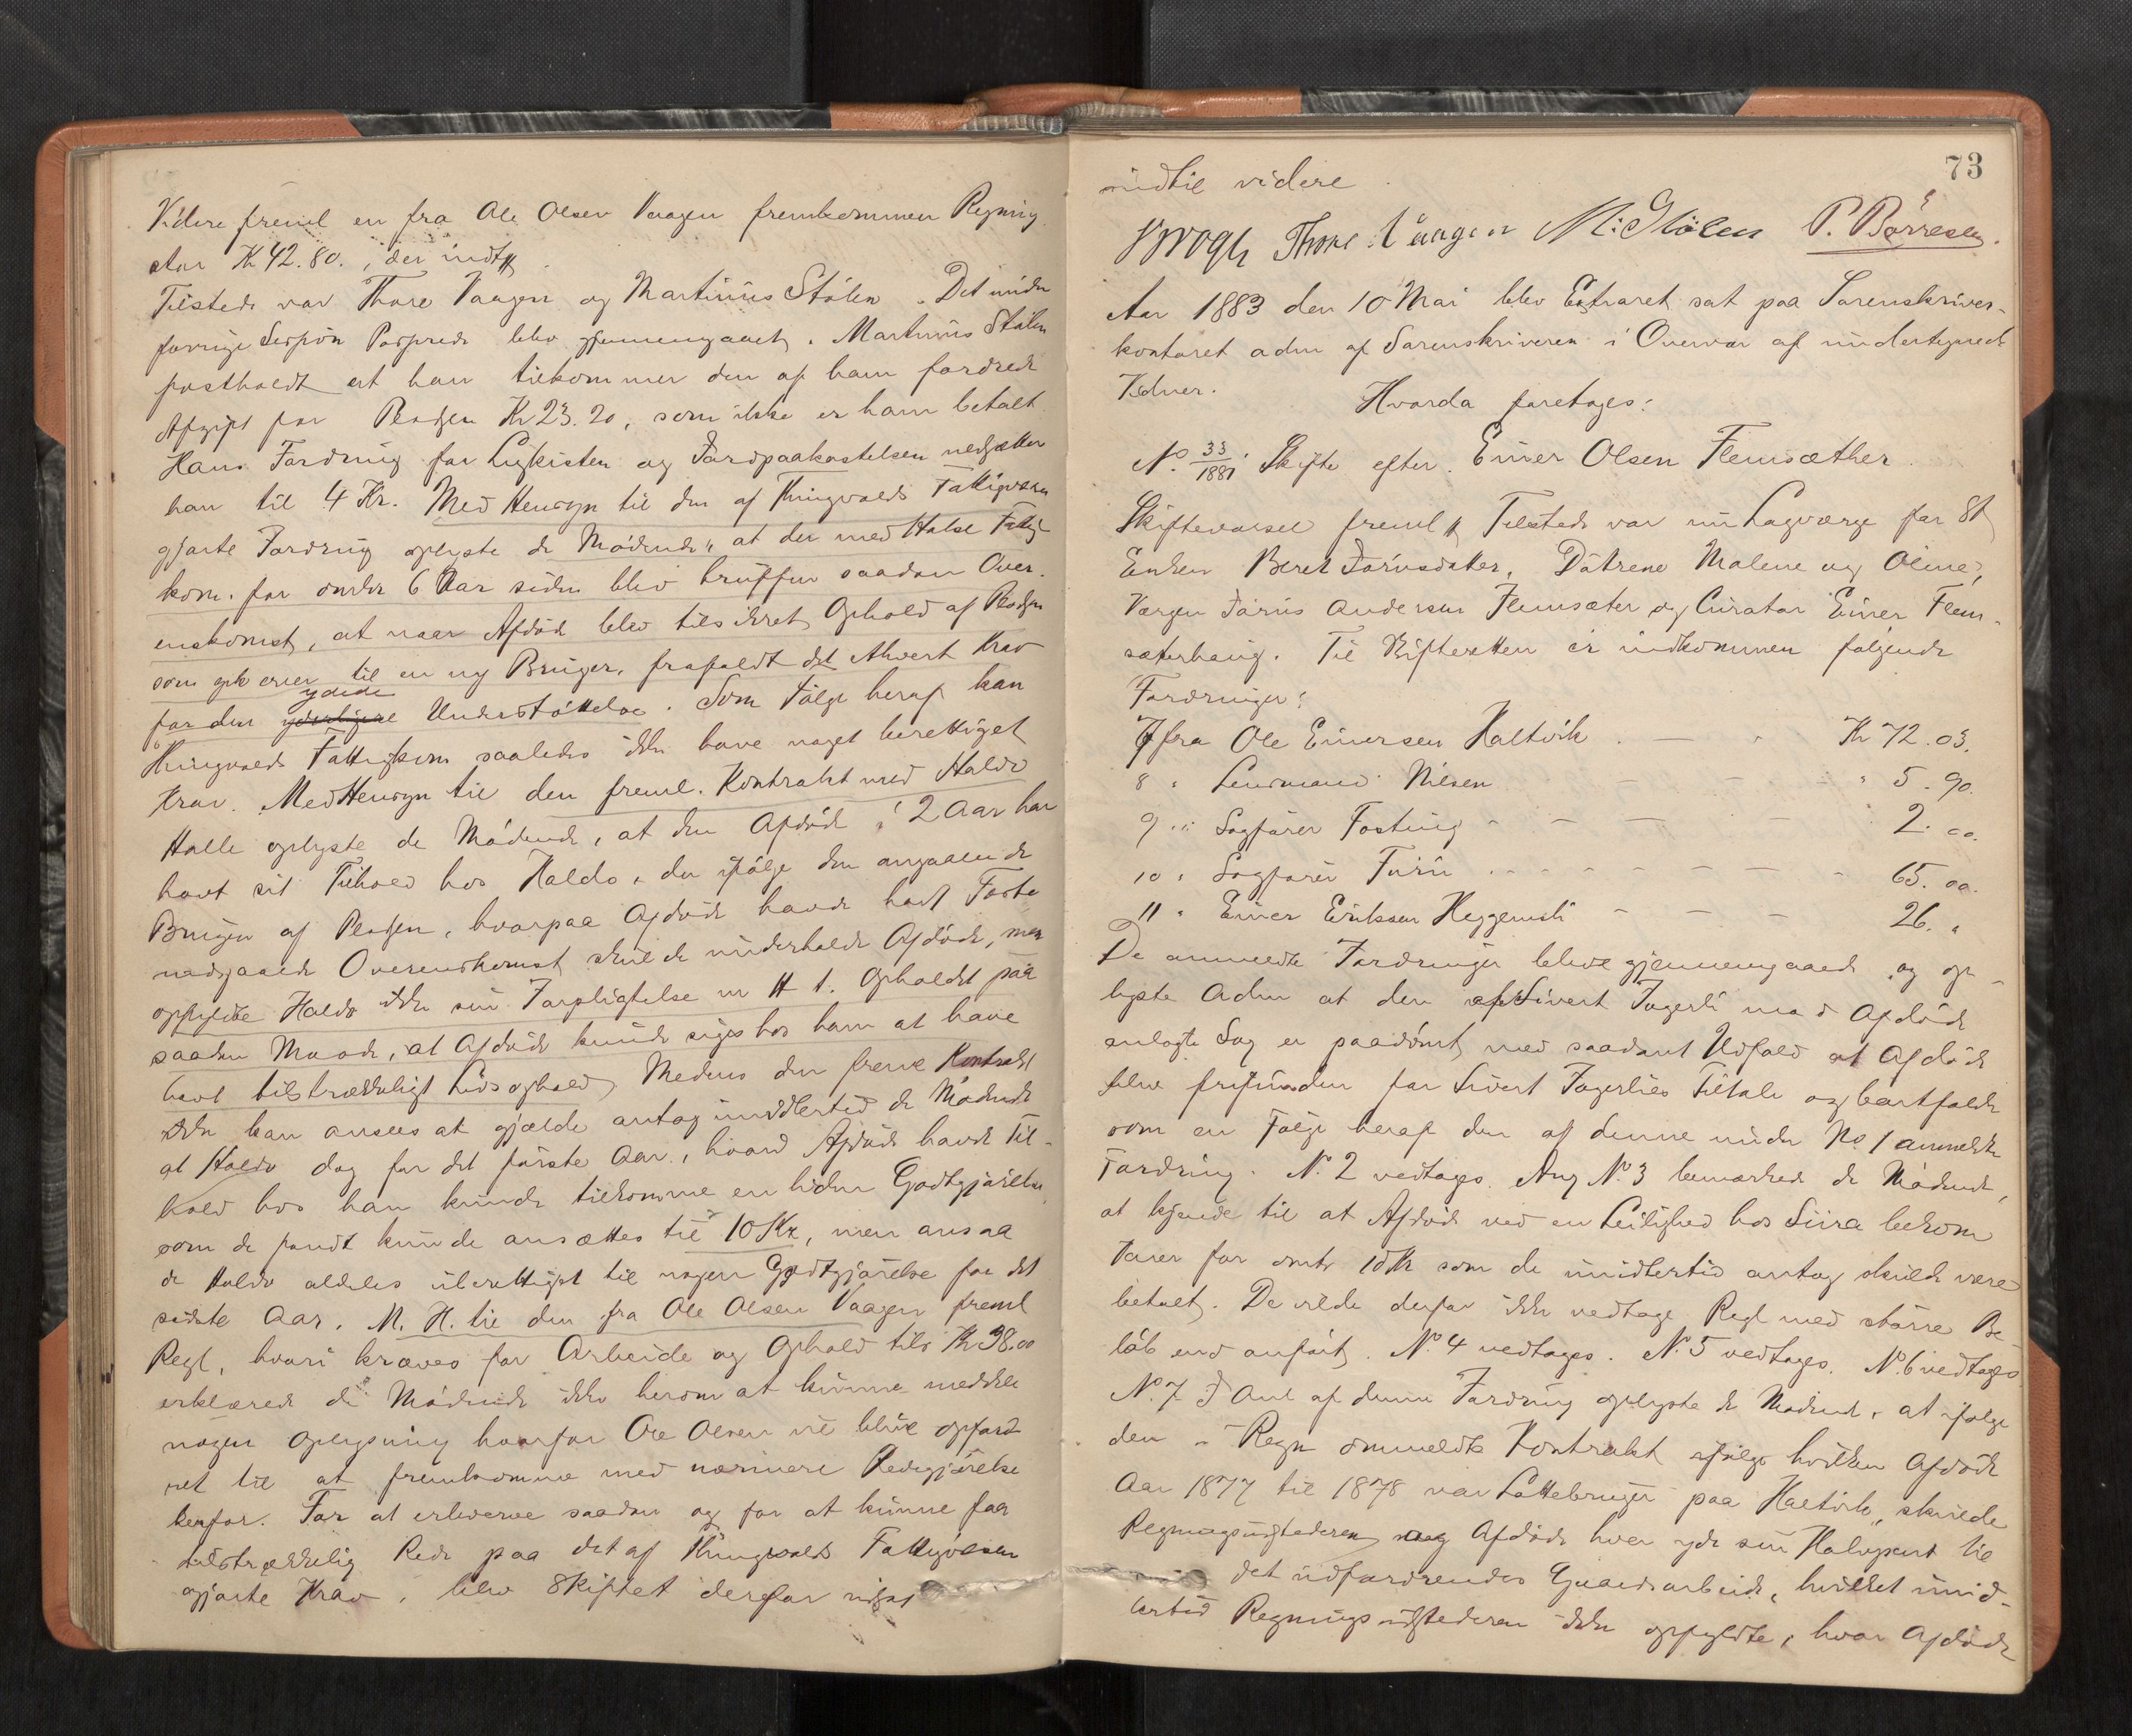 Videre freml en fra Ole Olsen Vaagen fremkommen Regning
stor Kr 42.80., der indt
Tilstede var Thore Vaagen og Martinus Stölen. Det under
forrige Session Passerede blev gjennemgaaet. Martinus Stölen
fastholdt at han tilkommer den af ham fordrede
Afgift for Pladsen Kr 23.20, som ikke er ham betalt
Hans Fordring for Ligkisten og Jordpaakastelsen nedsætter
han til 4 Kr. Med Hensyn til den af Thingvolds Fattigvæsen
gjorte Fordring oplyste de Mödende, at der med Halse Fattig
kom. for omtr 6 Aar siden blev truffen saadan Over-
enskomst, at naar Afdöde blev tilsikret Ophold af Pladsen
som gik over til en ny Bruger, frafaldt det ethvert Krav
for den yderligere ydede Understöttelse. Som Fölge heraf kan
Thingvolds Fattigkom saaledes ikke have noget berettiget
Krav. Med Hensyn til den freml. Kontrakt med Haldo
Halle oplyste de Mödende, at den Afdöde i 2 Aar har
havt sit Tilhold hos Haldo, der ifölge den angaaende
Brugen af Pladsen, hvorpaa Afdöde havde havt Feste
indgaaede Overenskomst skulde underholde Afdöde, men
opfyldte Haldo ikke sin Forpligtelse m H t. Opholdet paa
saadan Maade, at Afdöde kunde siges hos ham at have
havt tilstrækkeligt Livsophold, Medens den freml Kontrakt
ikke kan ansees at gjælde antog imidlertid de Mödende
at Haldo dog for det förste Aar, hvori Afdöde havde Til-
hold hos han kunde tilkomme en liden Godtgjörelse
som de fandt kunde ansættes til 10 Kr, men ansaa
de Haldo aldeles uberettiget til nogen Godtgjörelse for det
sidste Aar. M. H. til den fra Ole Olsen Vaagen freml
Regl, hvori kræves for Arbeide og Ophold tils Kr 38.00
erklærede de Mödende ikke herom at kunne meddele
nogen Oplysning hvorfor Ole Olsen vil blive opford
ret til at fremkomme med nærmere Redegjörelse
herfor. For at erhverve saadan og for at kunne faa
tilstrækkelig Rede paa det af Thingvolds Fattigvæsen
gjorte Krav, blev Skiftet derfor udsat
73
indtil videre.
Brogh Thore Vaagen M: Stölen P. Börresen.
Aar 1883 den 10 Mai blev Extraret sat paa Sorenskriver-
kontoret adm af Sorenskriveren i Overvær af undertegnede
Vidner.
Hvorda foretoges:
No. 33/1881 Skifte efter Einer Olsen Flemsæther
Skiftevarsel freml Tilstede var nu Lagværge for St
Enken Beret Jörnsdatter, Dötrene Malene og Oline,
Værgen Jörns Andersen Flemsæter og Curator Einer Flem-
sæterhaug. Til Skifteretten er indkommen fölgende
Fordringer:
7 fra Ole Einersen Haltvik . — . Kr 72.03.
8 " Lensmand Nilsen — — — " 5.90.
9 " Sagförer Fosting — — — — 2.00.
10 " Sagförer Furu — — — — 65.00.
11 " Einer Eriksen Heggemsli — — — 26. "
De anmeldte Fordringer bleve gjennemgaaede og op-
lyste Adm at den af Sivert Fagerli mod Afdöde
anlagte Sag er paadömt med saadant Udfald at Afdöde
blev frifunden for Sivert Fagerlies Tiltale og bortfalde
som en Fölge heraf den af denne under No 1 anmeldte
Fordring. No. 2 vedtages. Ang No. 3 bemærkede de Mödende,
at kjende til at Afdöde ved en Leilighed hos Siira bekom
Varer for omtr 10 Kr som de imidlertid antog skulde være
betalt. De vilde derfor ikke vedtage Regl med större Be
löb end anfört. No. 4 vedtages. No. 5 vedtages. No. 6 vedtages
No. 7 I Anl af denne Fordring oplyste de Mödende, at ifölge
den i Regn ommeldte Kontrakt ifölge hvilken Afdöde
Aar 1877 til 1878 var Lottebruger paa Haltvik, skulde
Regningsudstederen og Afdöde hver yde sin Halvpart til
det udfordrendes Gaardsarbeide, hvilket imid-
lertid Regningsudstederen ikke opfyldte, hvor Afdöde